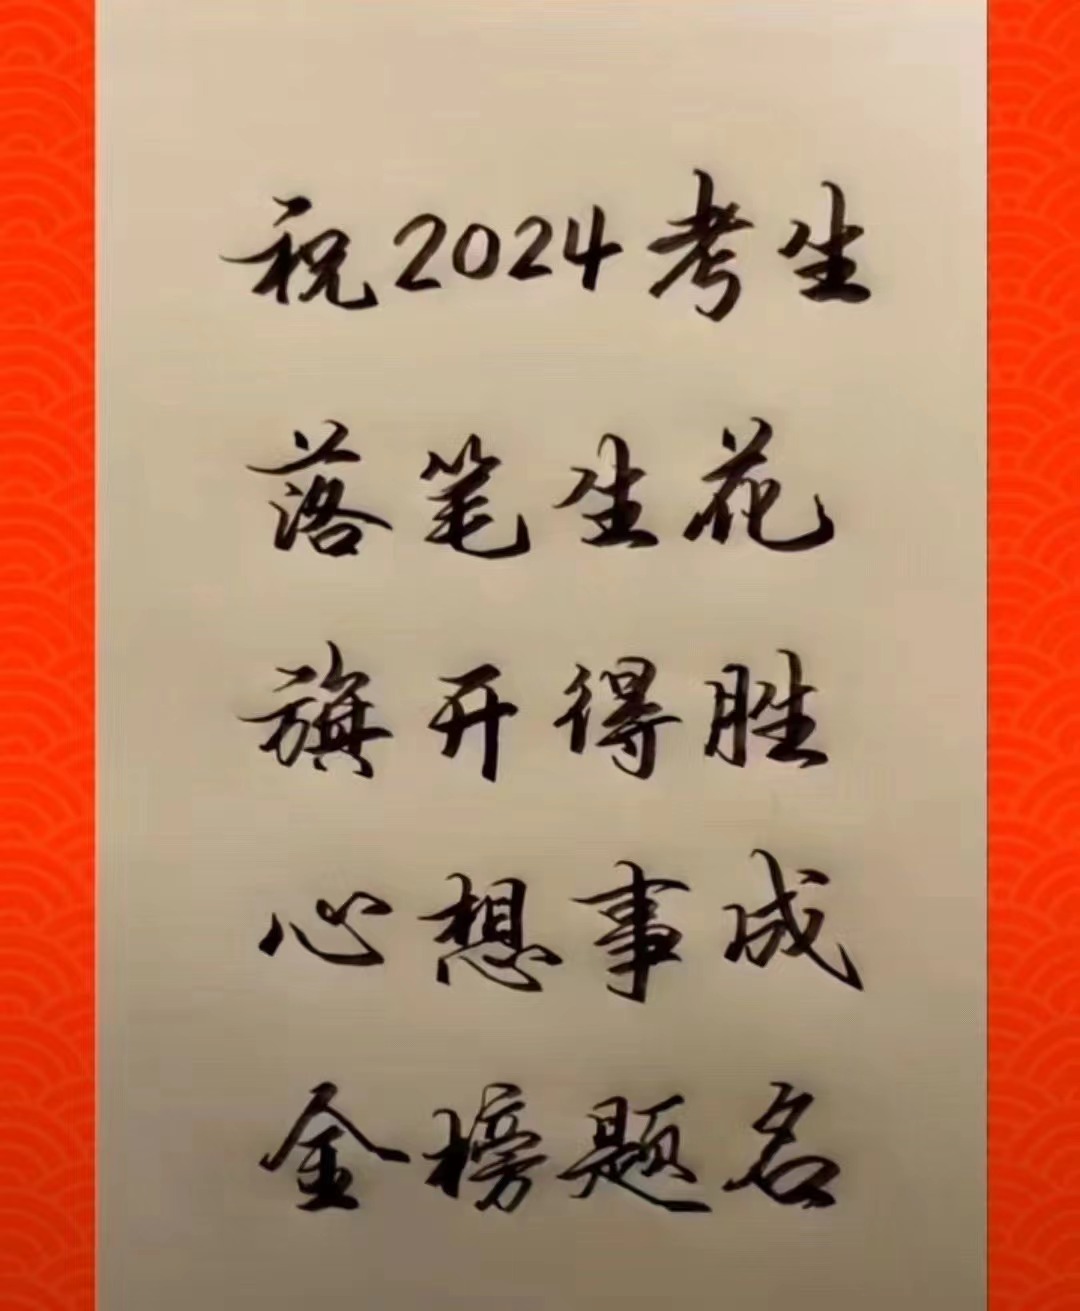 祝2024考生
落笔生花
旗开得胜
心想事成
金榜题名